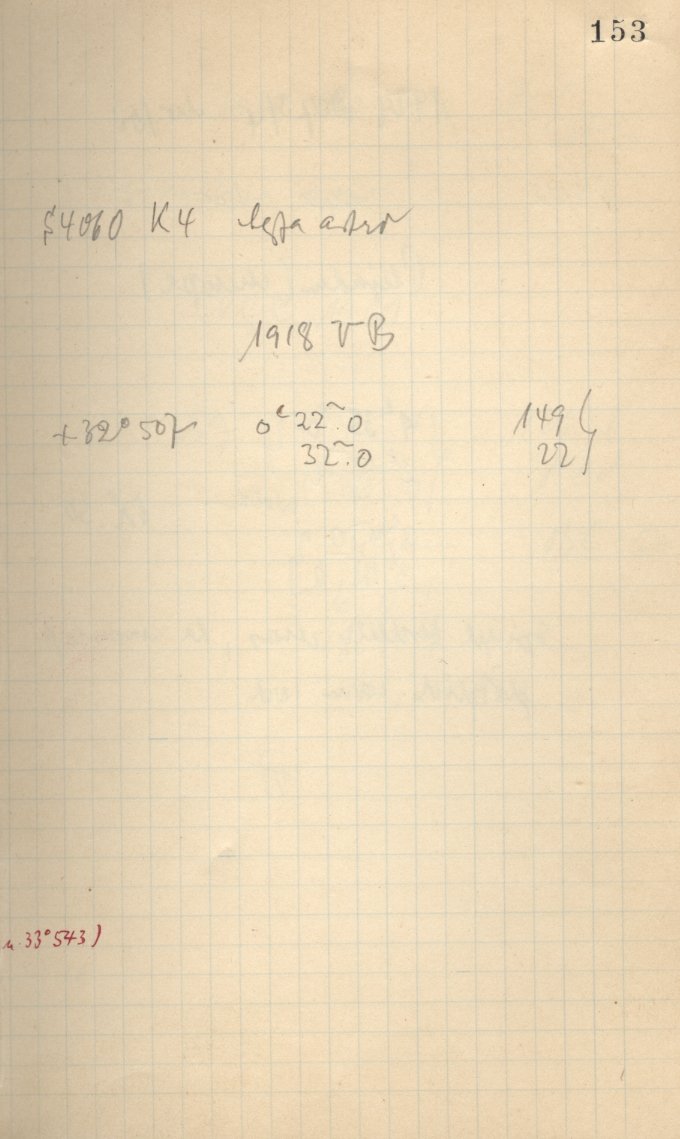 153
4060 K4
1918 VB
+32° 507 0 22.0 149
32.0 22
33° 543)